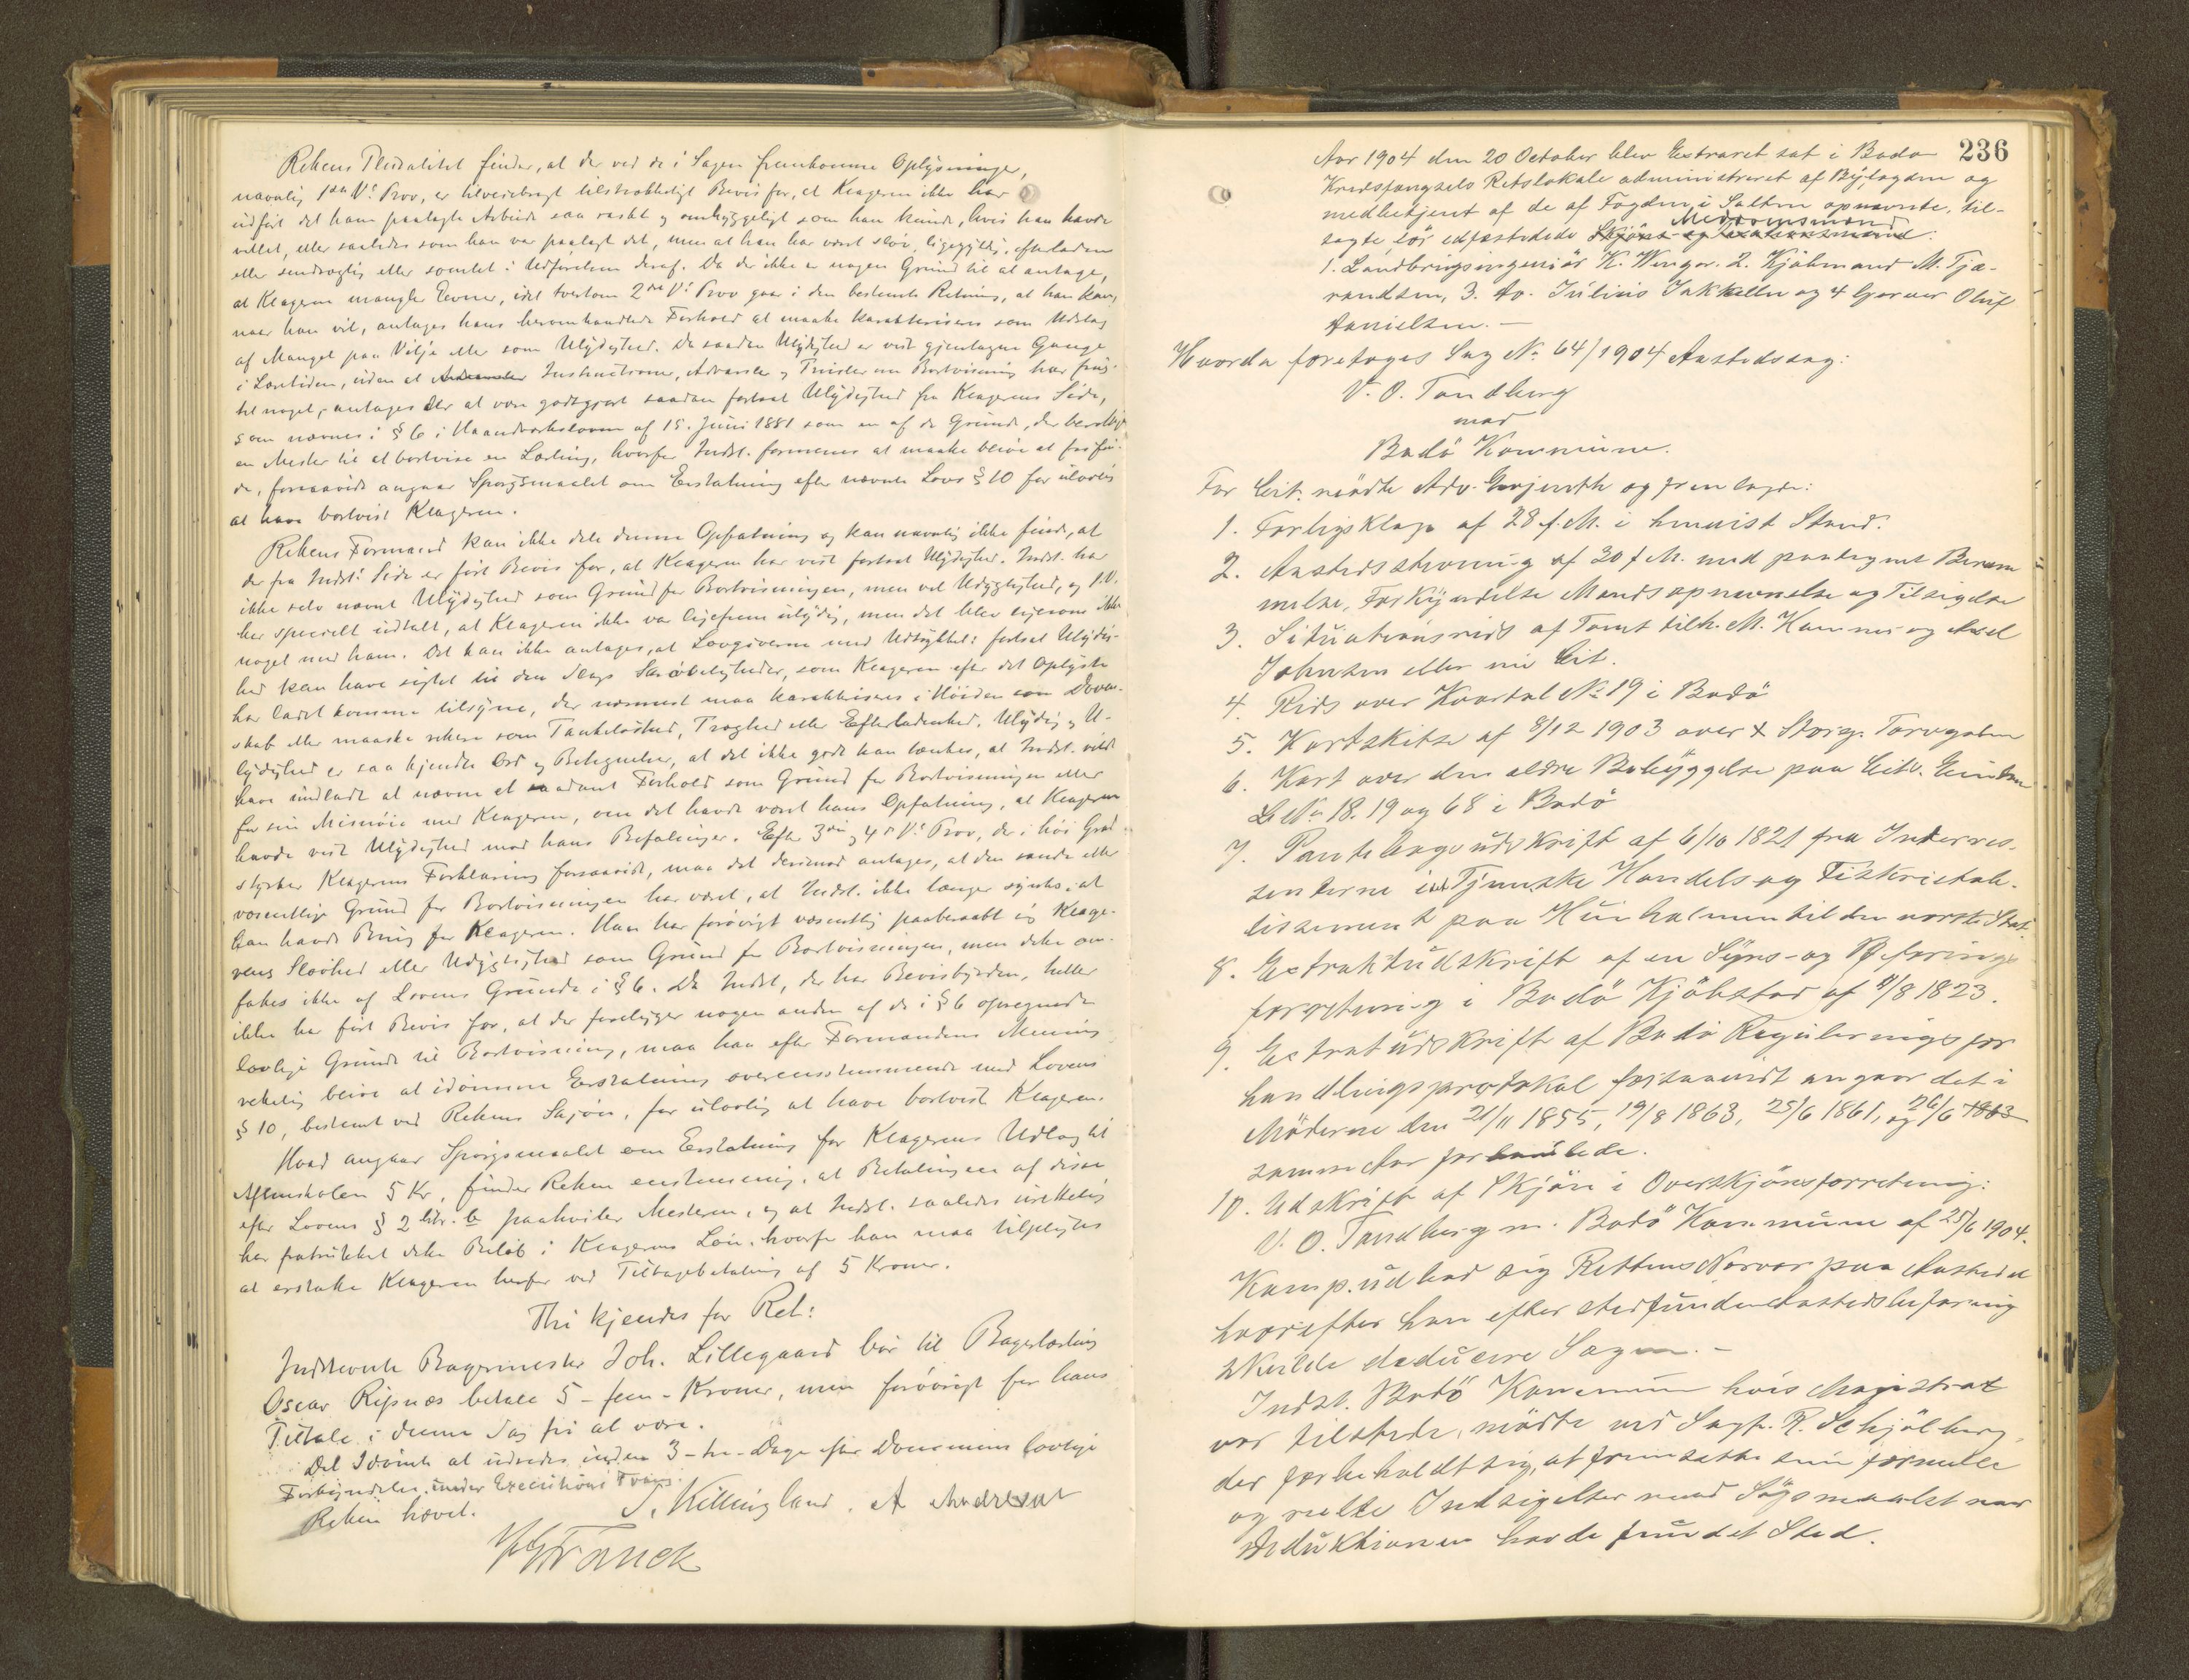 Rettens Pluralitet finder, at der ved de i Sagen fremkomne Oplysninger,
navnlig 1ste Vs Prov, er tilveiebragt tilstrækkeligt Bevis for, at Klageren ikke har
udført det ham paalagte Arbeide saa raskt og omhyggeligt som han kunde, hvis han havde
villet, eller saaledes som han var paalagt det, men at han har været sløv, ligegyldig, efterladen
eller sendrægtig eller somlet i Udførelsen deraf. Da der ikke er nogen Grund til at antage,
at Klageren mangler Evner, idet tvertom 2det Vs Prov gaar i den bestemte Retning, at han kan,
naar han vil, antages hans heromhandlede Forhold at maatte karakteriseres som Udslag
af Mangel paa Vilje eller som Ulydighed. Da saadan Ulydighed er vist gjentagne Gange
i Læretiden, uden at Instructioner, Advarsler og Trusler om Bortvisning har frug-
tet noget, antages der at være godtgjort saadan fortsat Ulydighed fra Klagerens Side,
som nævnes i § 6 i Haandverksloven af 15. Juni 1881 som en af de Grunde, der berettige
en Mester til at bortvise en Lærling, hvorfor Indst. formenes at maatte blive at frifin-
de, forsaavidt angaar Spørgsmaalet om Erstatning efter nævnte Lovs § 10 for ulovlig
at have bortvist Klageren.
Rettens Formand kan ikke dele denne Opfatning og kan navnlig ikke finde, at
der fra Indst.s Side er ført Bevis for, at Klageren har vist fortsat Ulydighed. Indst. har
ikke selv nævnt Ulydighed som Grund for Bortvisningen, men vel Udygtighed, og 1.V.
har specielt udtalt, at Klageren ikke var ligefrem ulydig, men det blev ligesom ikke
noget med ham. Det kan ikke antages, at Lovgiveren med Udtrykket: fortsat Ulydig-
hed kan have sigtet til den Slags Skrøbeligheder, som Klageren efter det Oplyste
har ladet komme tilsyne, der nærmest maa karakteriseres i Høiden som Doven-
skab eller maaske rettere som Tankeløshed, Træghed eller Efterladenhed. Ulydig og U-
lydighed er saa kjendte Ord og Betegnelser, at det ikke godt kan tænkes, at Indst. vilde
have undladt at nævne et saadant Forhold som Grund for Bortvisningen eller
for sin Misnøie med Klageren, om det havde været hans Opfatning, at Klageren
havde vist Ulydighed mod hans Befalinger. Efter 3die og 4de Vs Prov, der i høi Grad
styrker Klagerens Forklaring forsaavidt, maa det derimod antages, at den sande eller
væsentlige Grund for Bortvisningen har været, at Indst. ikke længer syntes, at
han havde Brug for Klageren. Han har forøvrigt væsentlig paaberaabt sig Klage-
rens Sløvhed eller Udygtighed som Grund for Bortvisningen, men dette om-
fattes ikke af Lovens Grunde i § 6. Da Indst., der har Bevisbyrden, heller
ikke har ført Bevis for, at der foreligger nogen anden af de i § 6 opregnede
lovlige Grunde til Bortvisning, maa han efter Formandens Mening
rettelig blive at idømme Erstatning overensstemmende med Lovens
§ 10, bestemt ved Rettens Skjøn, for ulovlig at have bortvist Klageren.
Hvad angaar Spørgsmaalet om Erstatning for Klagerens Udlæg til
Aftenskolen 5 Kr, finder Retten enstemmig, at Betalingen af disse
efter Lovens § 2 litr. b paahviler Mesteren, og at Indst. saaledes urettelig
har fratrukket dette Beløb i Klagerens Løn, hvorfor han maa tilpligtes
at erstatte Klageren herfor ved Tilbagebetaling af 5 Kroner.
Thi kjendes for Ret:
Indstevnte Bagermester Joh. Lillegaard bør til Bagerlærling
Oscar Ripnæs betale 5 – fem – Kroner, men forøvrigt for hans
Tiltale i denne Sag fri at være.
Det Idømte at udredes inden 3 – tre – Dage efter Dommens lovlige
Forkyndelse under Executions Tvang.
Retten hævet.
S. Killingland. A Andresen
Franck
236
Aar 1904 den 20 October blev Extraret sat i Bodø
Kredsfængsels Retslokale administreret af Byfogden og
medbetjent af de af Fogden i Salten opnævnte, til-
sagte før edfæstede Meddomsmænd
1. Landbrugsingeniør K. Wenger. 2. Kjøbmand M. Tjæ-
randsen, 3. do. Julius Jakhelln og 4 Garver Oluf
Danielsen. –
Hvorda foretoges Sag No 64/1904 Aastedssag:
V. O. Tandberg
mod
Bodø Kommune.
For Cit. mødte Adv. og fremlagde:
1. Forligsklage af 28 f. M. i henvist Stand.
2. Aastedsstevning af 30 f M. med paategnet Beram
melse, Forkyndelse Mandsopnævnelse og Tilsigelse
3. Situationsrids af Tomt tilh. M. Hammer og Axel
Johnsen eller nu Cit.
4. Rids over Kvartal No 19 i Bodø
5. Kartskitse af 8/12 1903 over Storg. Torvgaden
6. Kart over den ældre Bebyggelse paa Citv. Eiendom
L. No 18. 19 og 68 i Bodø
7. Pantebogsudskrift af 6/10 1821 fra Interres-
senterne i det Handels og Fiskrietab-
lissement paa Hundholmen til den norske Stat
8. Extraktudskrift af en Syns- og Befarings
forretning i Bodø Kjøbstad af 11/8 1823.
9. Extratudskrift af Bodø Regulerings for
handlingsprotokol forsaavidt angaar det i
Møderne den 21/11 1855, 19/8 1863, 25/6 1861, og 26/6 1863
samme Aar forhandlede.
10. Udskrift af Skjøn i Overskjønsforretning:
V. O. Tandberg m. Bodø Kommune af 25/6 1904.
Komp. udbad sig Rettens Nærvær paa Aastedet
hvorefter han efter stedfunden Aastedsbefaring
skulde deducere Sagen. –
Indst. Bodø Kommune hvis Magistrat
var tilstede, mødte ved Sagf. R. Schjølberg,
der forbeholdt sig, at fremsætte sine formelle
og reelle Indsigelser mod Søgsmaalet naar
Deduktionen havde fundet Sted.